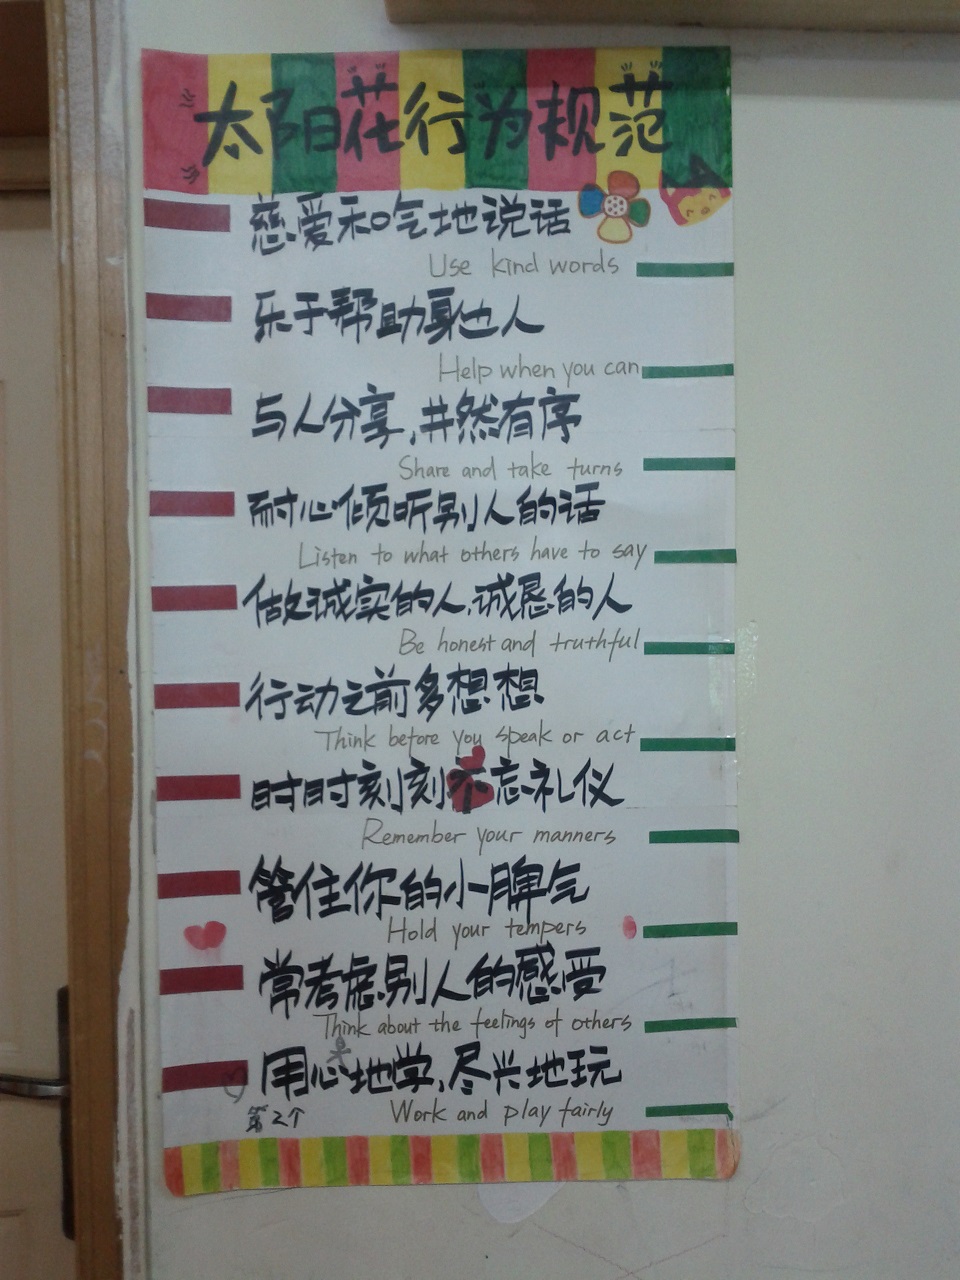 太阳花行为规范
慈爱和气地说话
Use kind words
乐于帮助其他人
Help when you can
与人分享,井然有序
Share and take turns
耐心倾听别人的话
Listen to what others have to say
做诚实的人,诚恳的人
Be honest and truthful
行动之前多想想
Think before you speak or act
时时刻刻不忘礼仪
Remember your manners
管住你的小脾气
Hold your tempers
常考虑别人的感受
Think about the feelings of others
用心地学,尽兴地玩
Work and play fairly
第2个